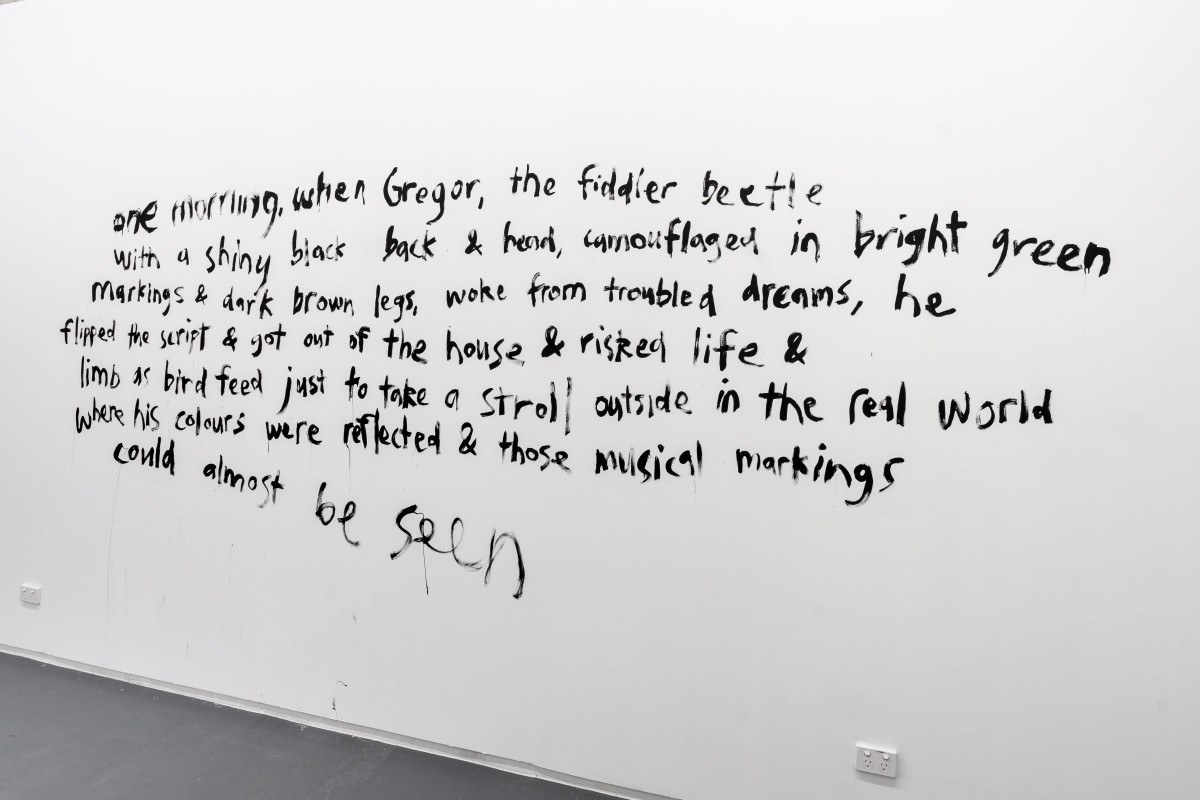 one morning, when Gregor, the fiddler beetle
with a shiny black back & head, camouflaged in bright green
markings & dark brown legs, woke from troubled dreams, he
flipped the script & got out of the house & risked life &
limb as bird feed just to take a stroll outside in the real world
where his colours were reflected & those musical markings
could almost be seen